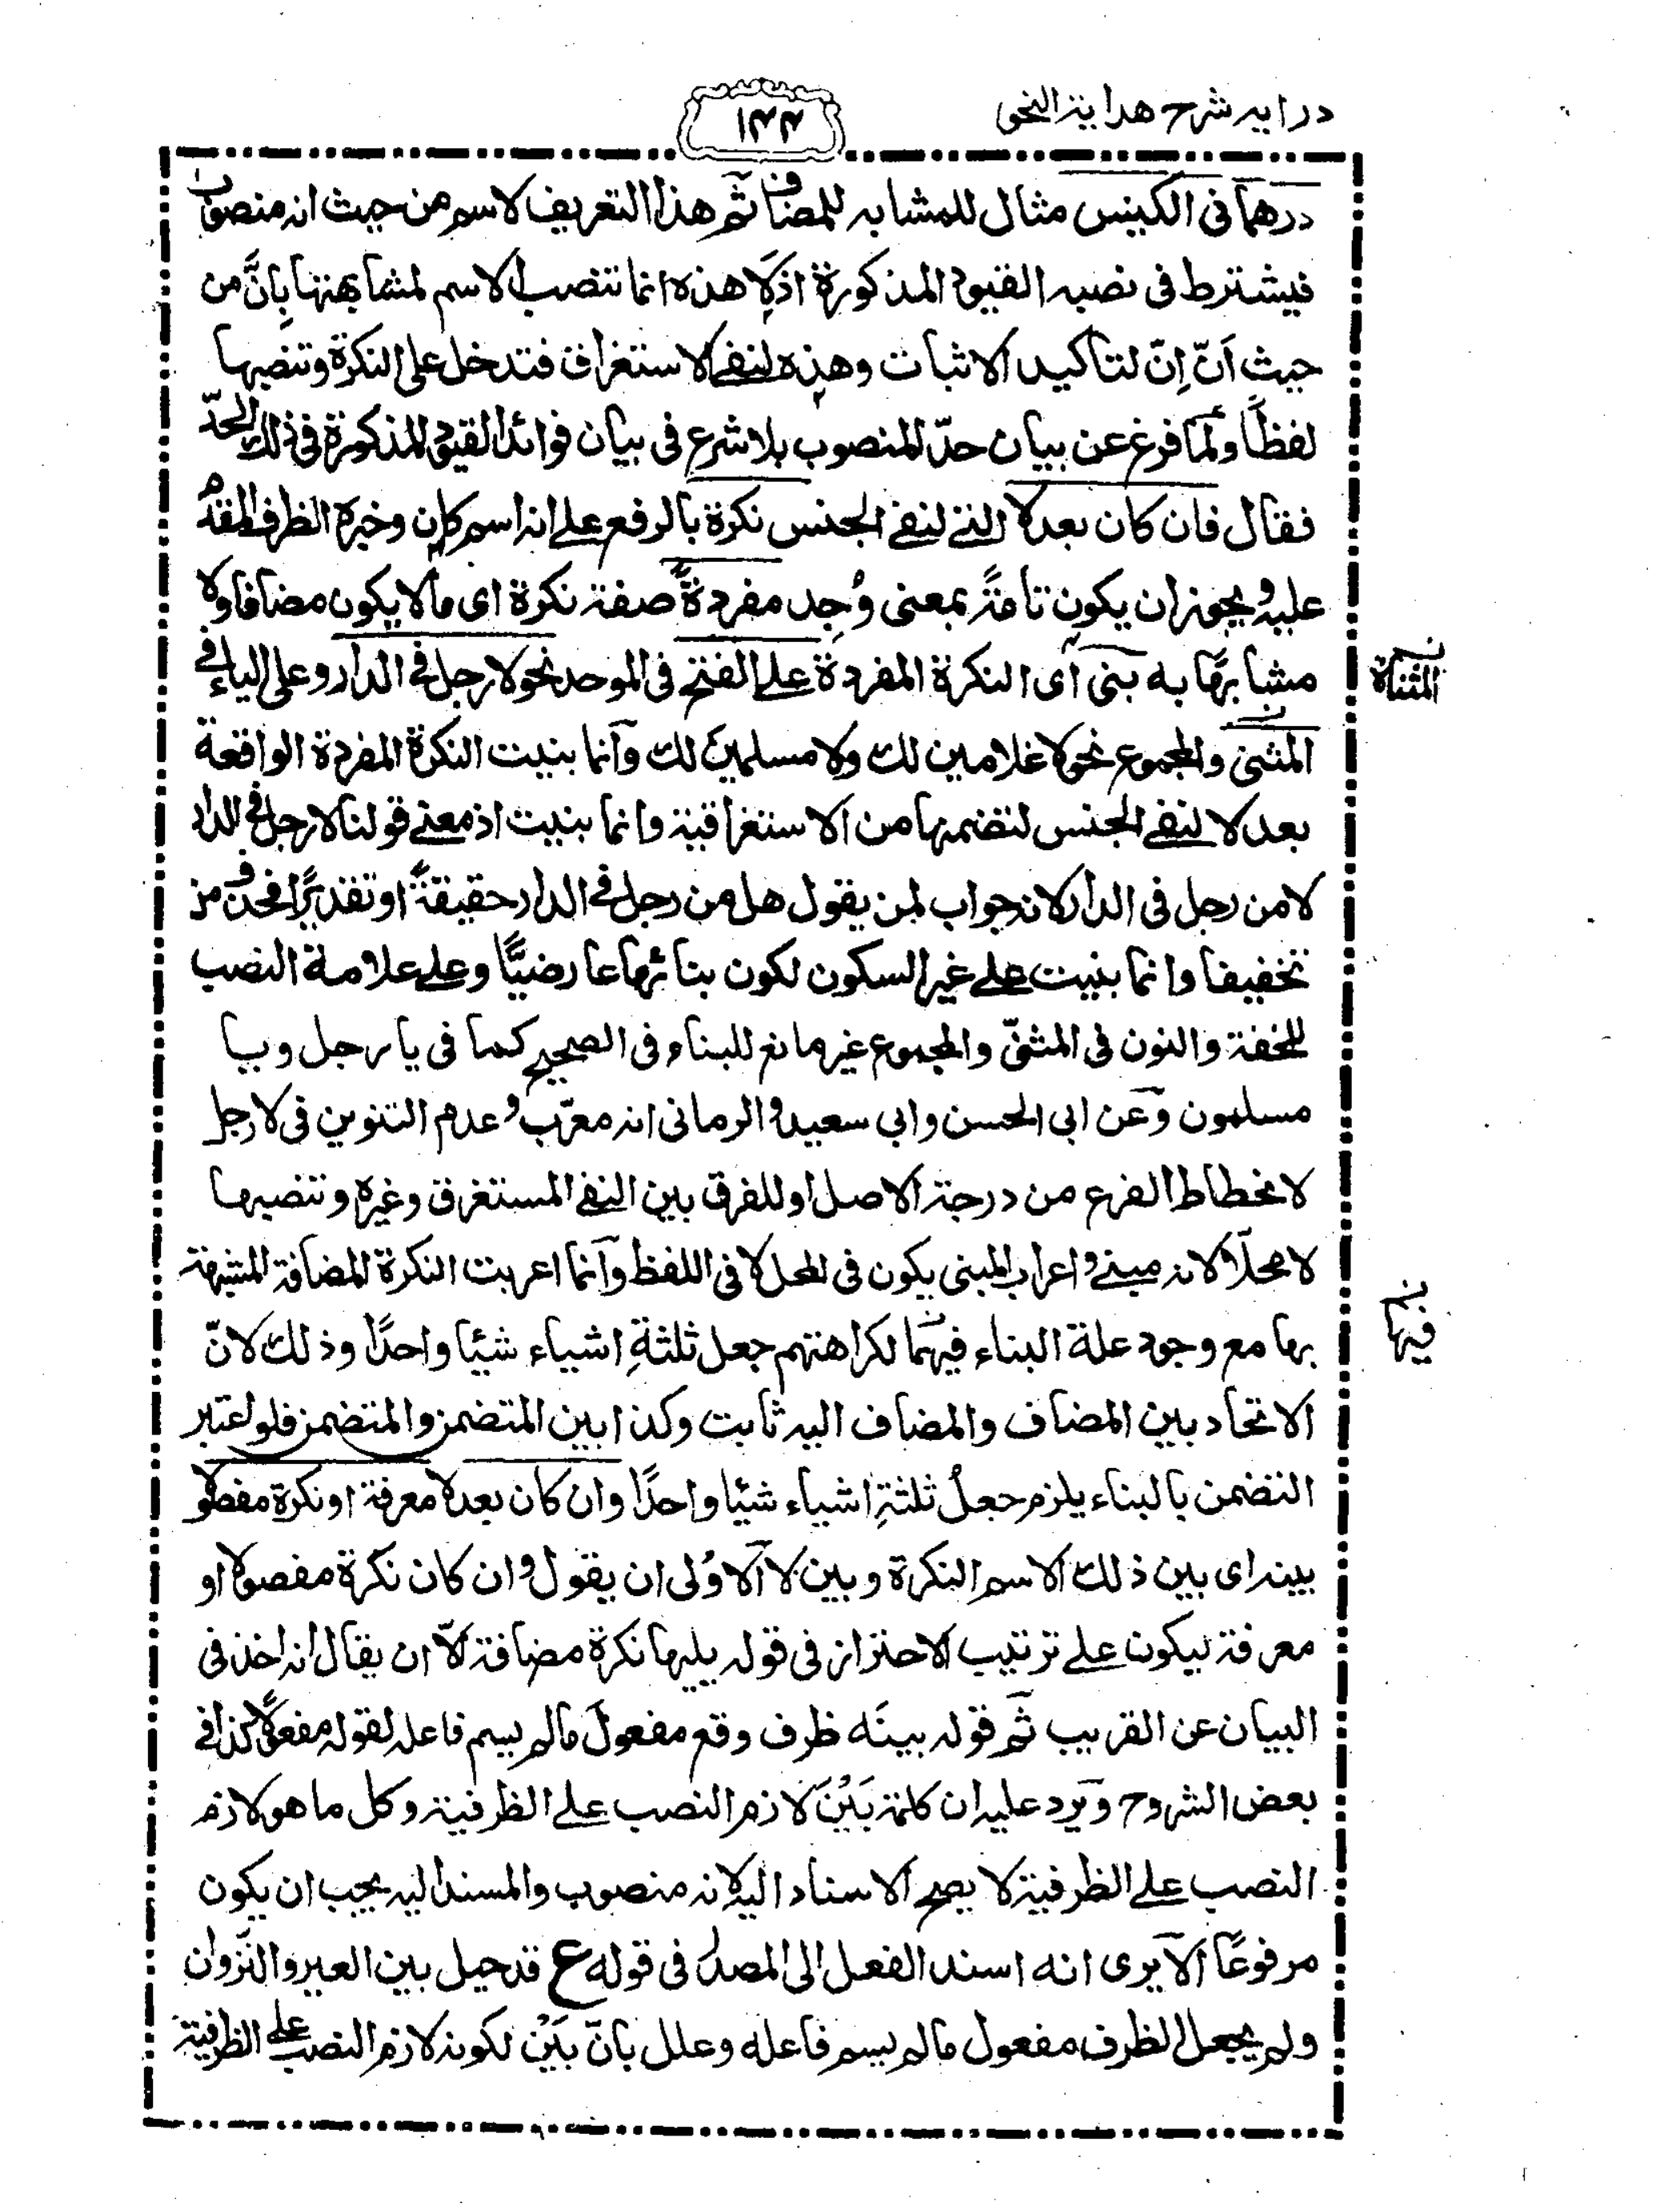 درايه شرح هداية النحو
١٤٤
درهما في الكيس مثال للمشابه للمضاف ثم هذا التعريف لاسم من حيث انه منصوب
فيشترط في نصبه القيود المذكورة اذ لا هذه انما تنصب الاسم لمشابهتها بانّ من
حيث أنّ إنّ لتاكيد الاثبات وهذه لنفي الاستغراق فتدخل على النكرة وتنصبها
لفظًا ولمّا فرغ عن بيان حدّ المنصوب بلا شرع في بيان فوائد القيود المذكورة في ذلك الحدّ
فقال فان كان بعد لا التي لنفي الجنس نكرة بالرفع على انه اسم كان وخبره الظرف المقدم
عليه ويجوز ان يكون تامّة بمعنى وُجِد مفردةٌ صفة نكرة اى ما لا يكون مضافا ولا
مشابهًا به بنى اى النكرة المفردة على الفتح في الموحد نحو لا رجل في الدار وعلى الياء في
المثناة
المثنى والمجموع نحو لا غلامين لك ولا مسلمين لك وانما بنيت النكرة المفردة الواقعة
بعد لا لنفي الجنس لتضمنها من الاستغراقية وانما بنيت اذ معنى قولنا لا رجل في الدار
لا من رجل في الدار لانه جواب لمن يقول هل من رجل في الدار حقيقةً او تقديرًا فحذف من
تخفيفا وانما بنيت على غير السكون لكون بنائها عارضيًّا وعلى علامة النصب
للخفة والنون في المثنّى والمجموع غير مانع للبناء في الصحيح كما في يا رجل ويا
مسلمون وعن ابى الحسن وابى سعيد والرمانى انه معرَب وعدم التنوين في لا رجل
لانحطاط الفرع من درجة الاصل او للفرق بين النفي المستغرق وغيره وتنصبها
لا محلّا لانه مبني واعراب المبنى يكون في المحل لا في اللفظ وانما اعربت النكرة المضافة المشبهة
بها مع وجود علة البناء فيهما لكراهتهم جعل ثلثةِ اشياء شيئا واحدًا وذلك لانّ
فيها
الاتحاد بين المضاف والمضاف اليه ثابت وكذا بين المتضمن والمتضمن فلو اعتبر
التضمن بالبناء يلزم جعلُ ثلثةِ اشياء شيئا واحدًا وان كان بعد لا معرفة او نكرة مفصولا
بينه اى بين ذلك الاسم النكرة وبين لا الاوُلى ان يقول وان كان نكرة مفصولا او
معرفة ليكون على ترتيب الاحتراز في قوله يليها نكرة مضافة الّا ان يقال انه اخذ في
البيان عن القريب ثم قوله بينَه ظرف وقع مفعولَ ما لم يسم فاعله لقوله مفعولًا كذا في
بعض الشروح ويَرد عليه ان كلمة بَيْنَ لازم النصب على الظرفية وكل ما هو لازم
النصب على الظرفية لا يصح الاسناد اليه لانه منصوب والمسند اليه يجب ان يكون
مرفوعًا ألا يرى انه اسند الفعل الى المصدر في قوله ع قد حيل بين العير والنَّزوان
ولم يجعل الظرف مفعول ما لم يسم فاعله وعلل بانّ بَيْن لكونه لازم النصب على الظرفية